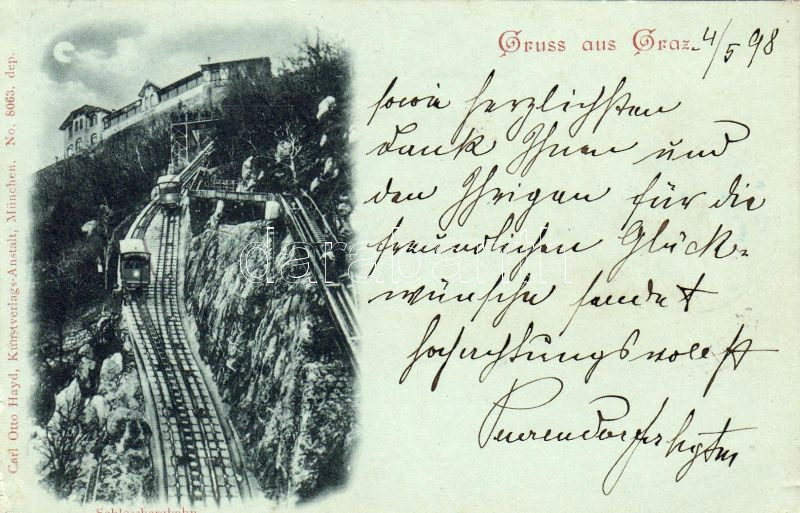 Gruss aus Graz. 4/5 98
sowie herzlichsten
Dank Ihnen und
den Ihrigen für die
freundlichen Glück-
wünsche sendet
hochachtungsvollst
Carl Otto Hayd, Kunstverlags-Anstalt, München. No. 8063. dep.
Schlossbergbahn
darabanth